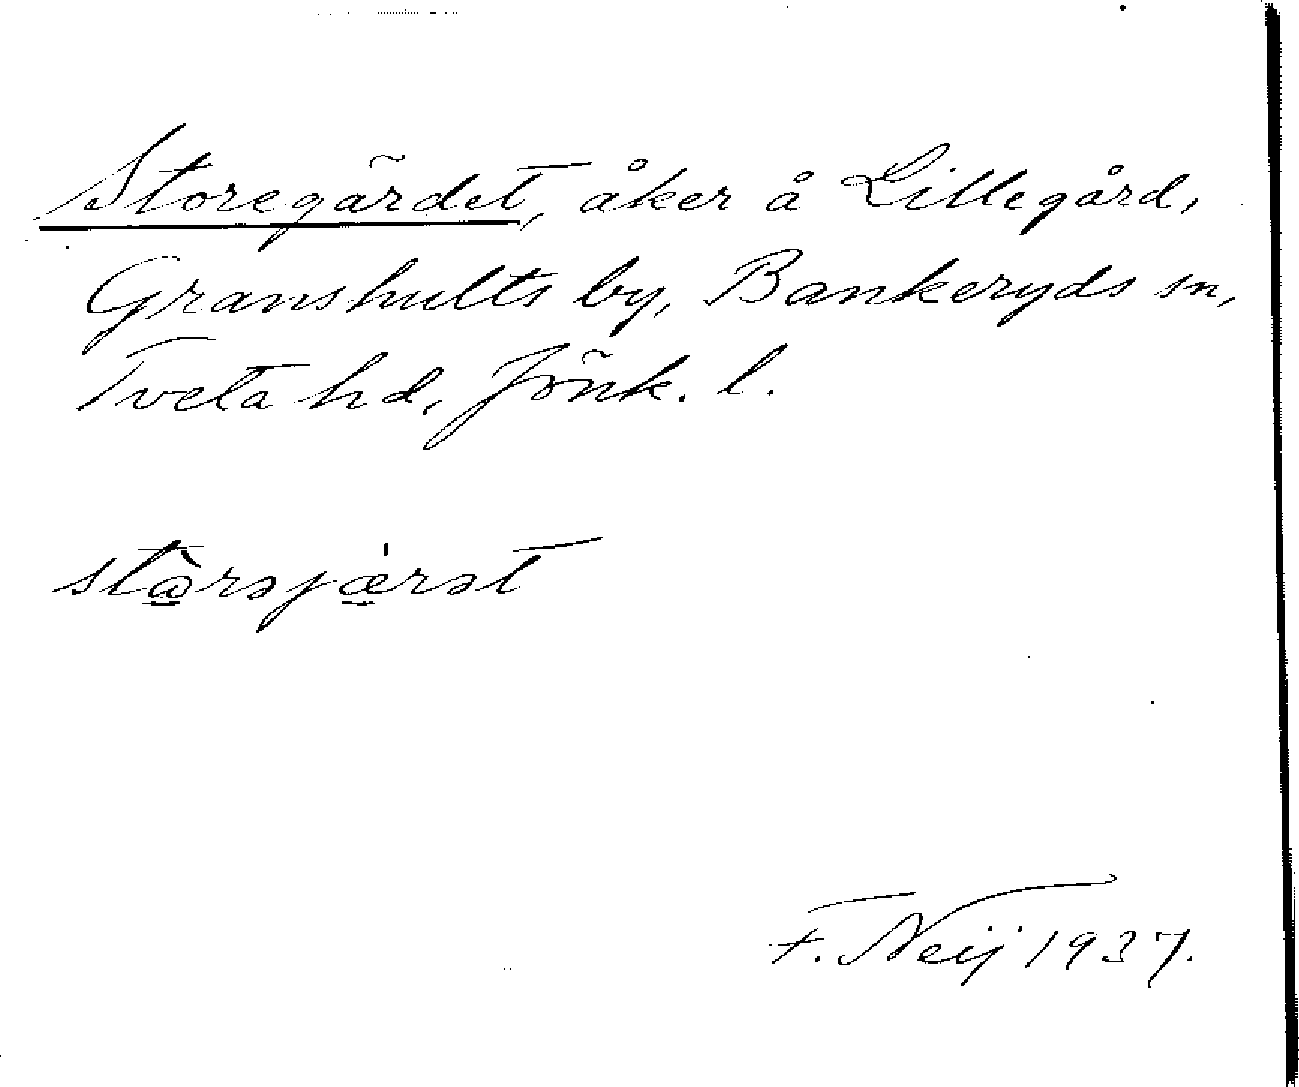 Storegärdet, åker å Lillegård,
Granshults by, Bankeryds sn,
Tveta hd, Jönk. l.
stɷ̀rəjæ̍rət
F. Neij 1937.